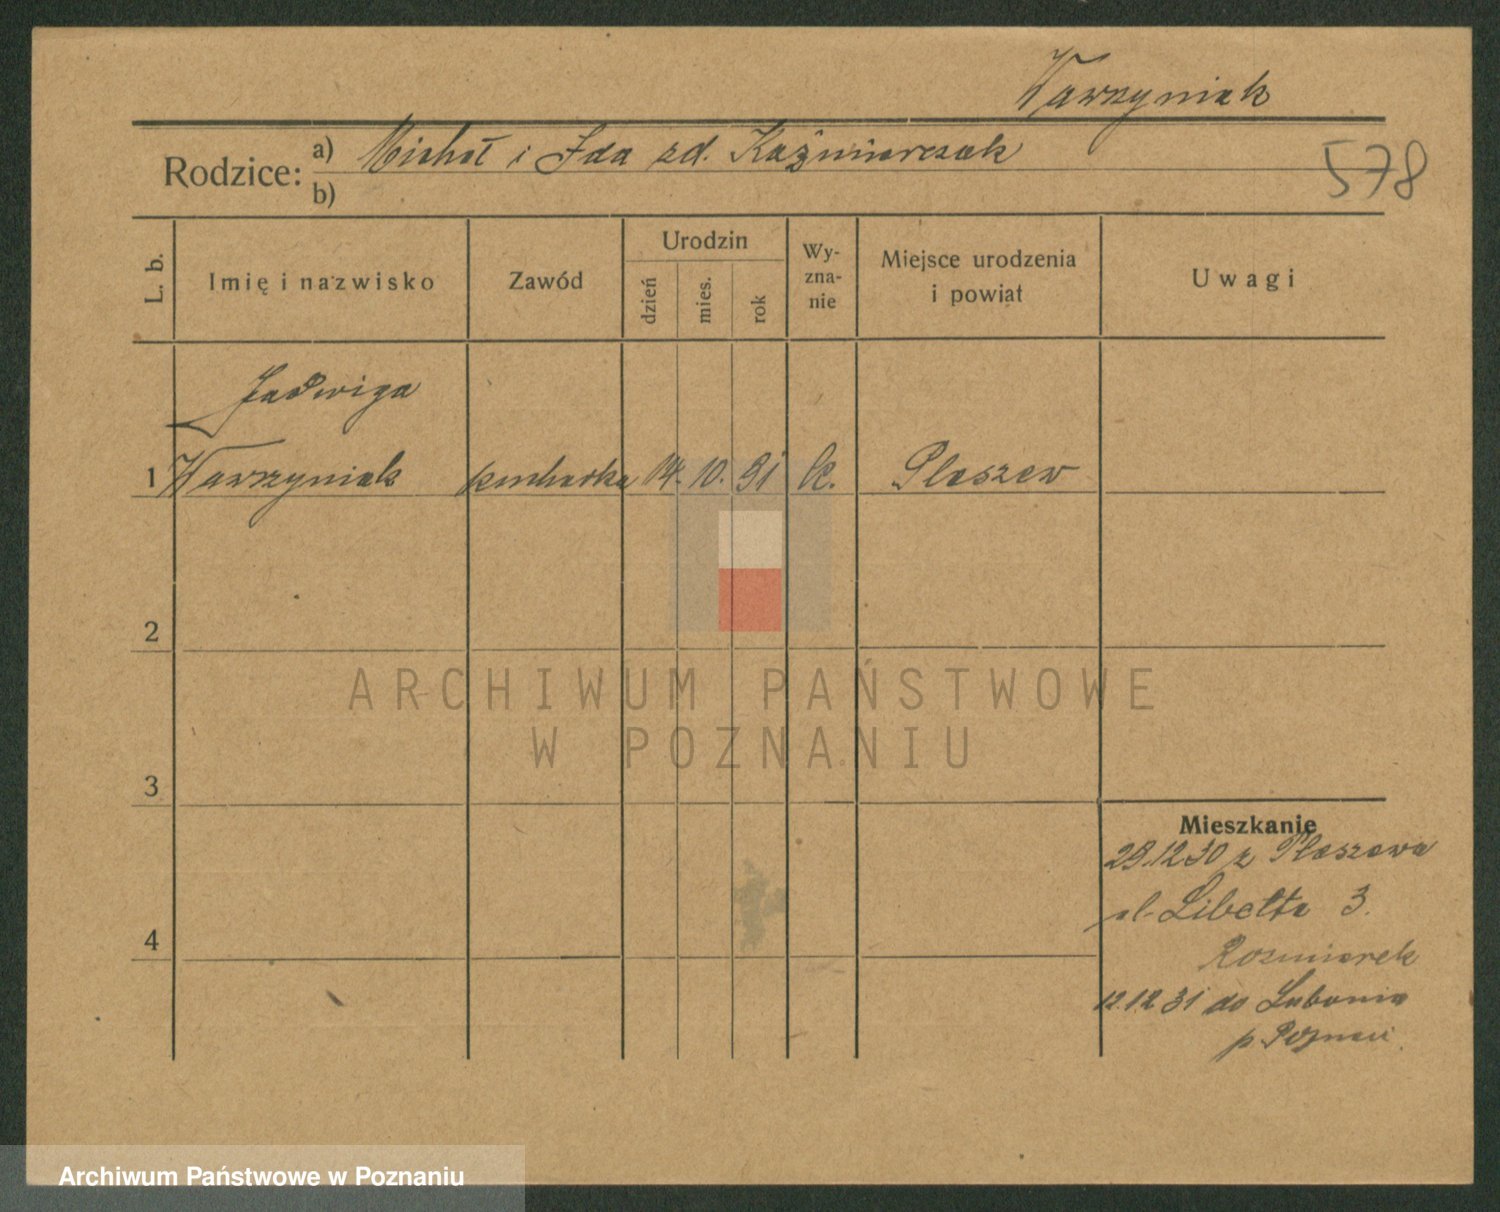 Wawrzyniak
Rodzice: a) Michał i Ida zd. Kaźmierczak
b)
578
L. b.
Imię i nazwisko
Zawód
Urodzin
dzień
mies.
rok
Wy-
zna-
nie
Miejsce urodzenia
i powiat
Uwagi
Jadwiga
1 Wawrzyniak kucharka 14. 10. 91 k. Pleszew
2
3
4
Mieszkanie
29.12 30 z Pleszewa
ul. Libelta 3.
12.12 31 do Lubonia
p. Poznań
ARCHIWUM PAŃSTWOWE
W POZNANIU
Archiwum Państwowe w Poznaniu